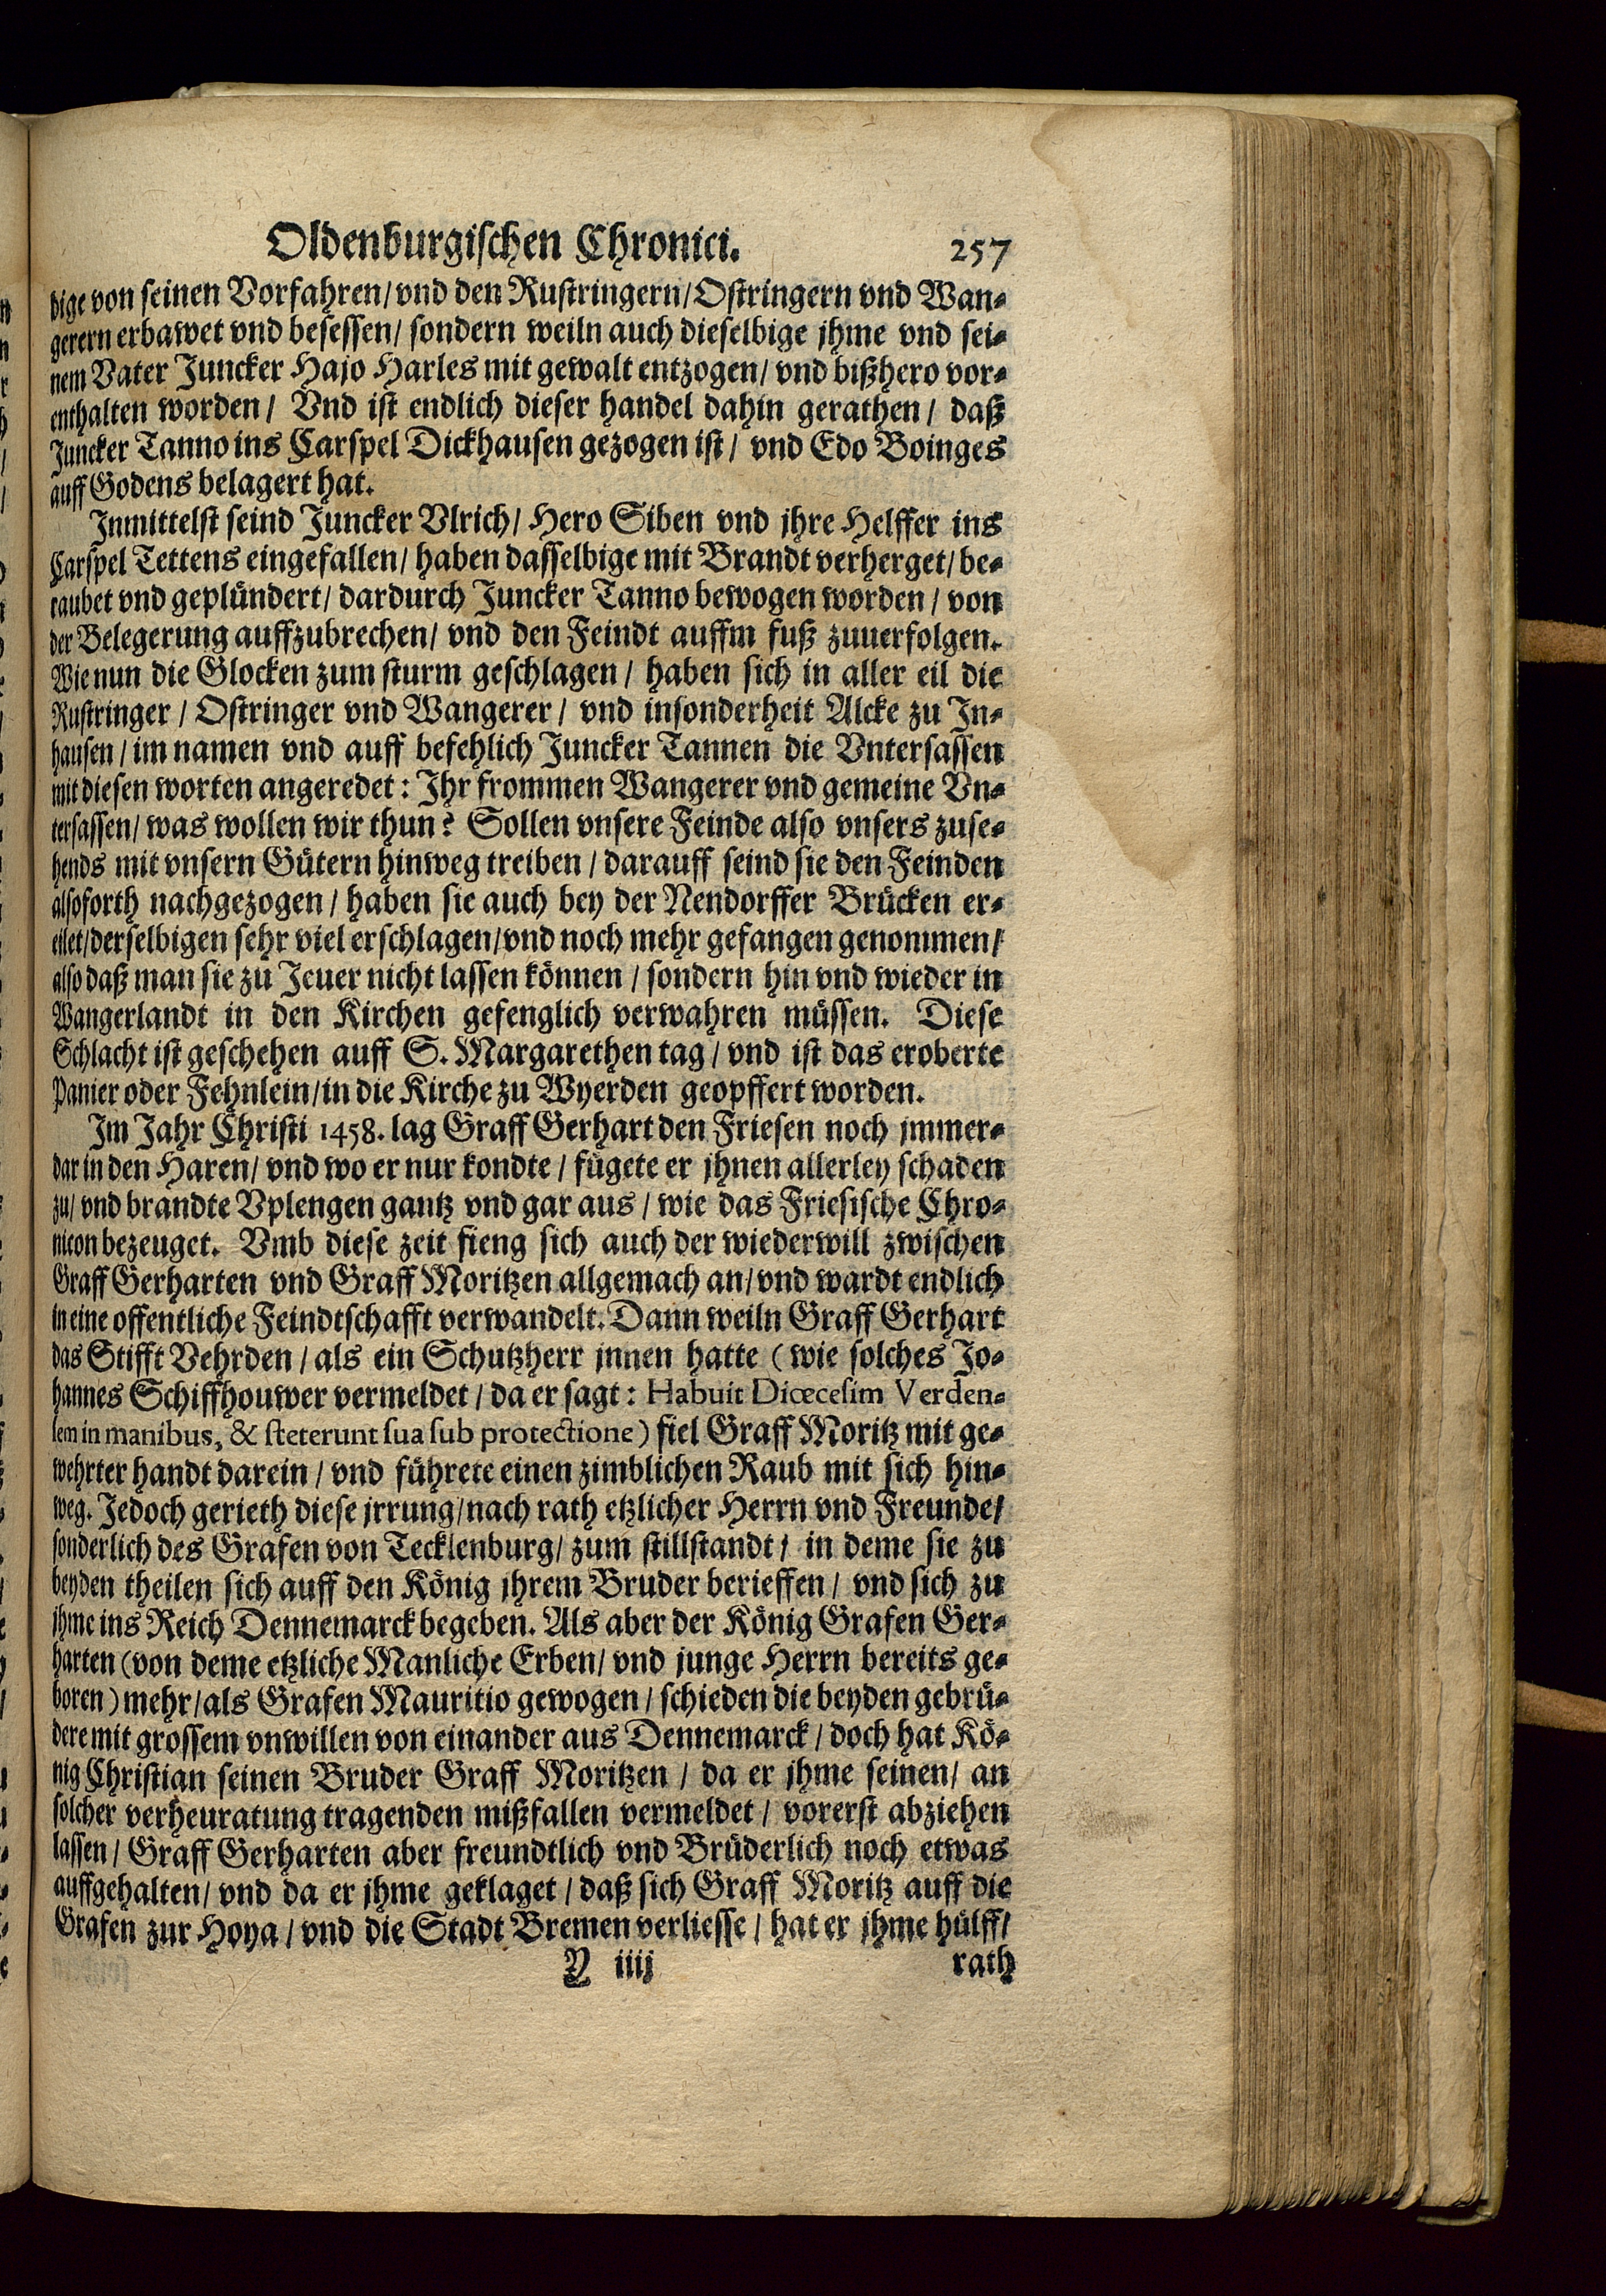 Oldenburgischen Chronici. 257
dige von seinen Vorfahren/ vnd den Rustringern/ Ostringern vnd Wan-
gerern erbawet vnd besessen/ sondern weiln auch dieselbige jhme vnd sei-
nem Vater Juncker Hajo Harles mit gewalt entzogen/ vnd bißhero vor-
enthalten worden/ Vnd ist endlich dieser handel dahin gerathen/ daß
Juncker Tanno ins Carspel Dickhausen gezogen ist/ vnd Edo Boinges
auff Godens belagert hat.
Inmittelst seind Juncker Vlrich/ Hero Siben vnd jhre Helffer ins
Carspel Tettens eingefallen/ haben dasselbige mit Brandt verherget/ be-
raubet vnd geplündert/ dardurch Juncker Tanno bewogen worden/ von
der Belegerung auffzubrechen/ vnd den Feindt auffm fuß zuuerfolgen.
Wie nun die Glocken zum sturm geschlagen/ haben sich in aller eil die
Rustringer/ Ostringer vnd Wangerer/ vnd insonderheit Alcke zu In-
hausen/ im namen vnd auff befehlich Juncker Tannen die Vntersassen
mit diesen worten angeredet: Ihr frommen Wangerer vnd gemeine Vn-
tersassen/ was wollen wir thun? Sollen vnsere Feinde also vnsers zuse-
hends mit vnsern Gütern hinweg treiben/ darauff seind sie den Feinden
alsoforth nachgezogen/ haben sie auch bey der Nendorffer Brücken er-
eilet/ derselbigen sehr viel erschlagen/ vnd noch mehr gefangen genommen/
also daß man sie zu Jeuer nicht lassen können/ sondern hin vnd wieder in
Wangerlandt in den Kirchen gefenglich verwahren müssen. Diese
Schlacht ist geschehen auff S. Margarethen tag/ vnd ist das eroberte
Panier oder Fehnlein/ in die Kirche zu Wyerden geopffert worden.
Im Jahr Christi 1458. lag Graff Gerhart den Friesen noch jmmer-
dar in den Haren/ vnd wo er nur kondte/ fügete er jhnen allerley schaden
zu/ vnd brandte Vplengen gantz vnd gar aus/ wie das Friesische Chro-
nicon bezeuget. Vmb diese zeit fieng sich auch der wiederwill zwischen
Graff Gerharten vnd Graff Moritzen allgemach an/ vnd wardt endlich
in eine offentliche Feindtschafft verwandelt. Dann weiln Graff Gerhart
das Stifft Vehrden/ als ein Schutzherr jnnen hatte (wie solches Jo-
hannes Schiffhouwer vermeldet/ da er sagt: Habuit Diœcesim Verden-
sem in manibus, & steterunt sua sub protectione) fiel Graff Moritz mit ge-
wehrter handt darein/ vnd führete einen zimblichen Raub mit sich hin-
weg. Jedoch gerieth diese jrrung/ nach rath etzlicher Herrn vnd Freunde/
sonderlich des Grafen von Tecklenburg/ zum stillstandt/ in deme sie zu
beyden theilen sich auff den König jhrem Bruder berieffen/ vnd sich zu
jhme ins Reich Dennemarck begeben. Als aber der König Grafen Ger-
harten (von deme etzliche Manliche Erben/ vnd junge Herrn bereits ge-
boren) mehr/ als Grafen Mauritio gewogen/ schieden die beyden gebrü-
dere mit grossem vnwillen von einander aus Dennemarck/ doch hat Kö-
nig Christian seinen Bruder Graff Moritzen/ da er jhme seinen/ an
solcher verheuratung tragenden mißfallen vermeldet/ vorerst abziehen
lassen/ Graff Gerharten aber freundtlich vnd Brüderlich noch etwas
auffgehalten/ vnd da er jhme geklaget/ daß sich Graff Moritz auff die
Grafen zur Hoya/ vnd die Stadt Bremen verliesse/ hat er jhme hülff/
Y iiij rath